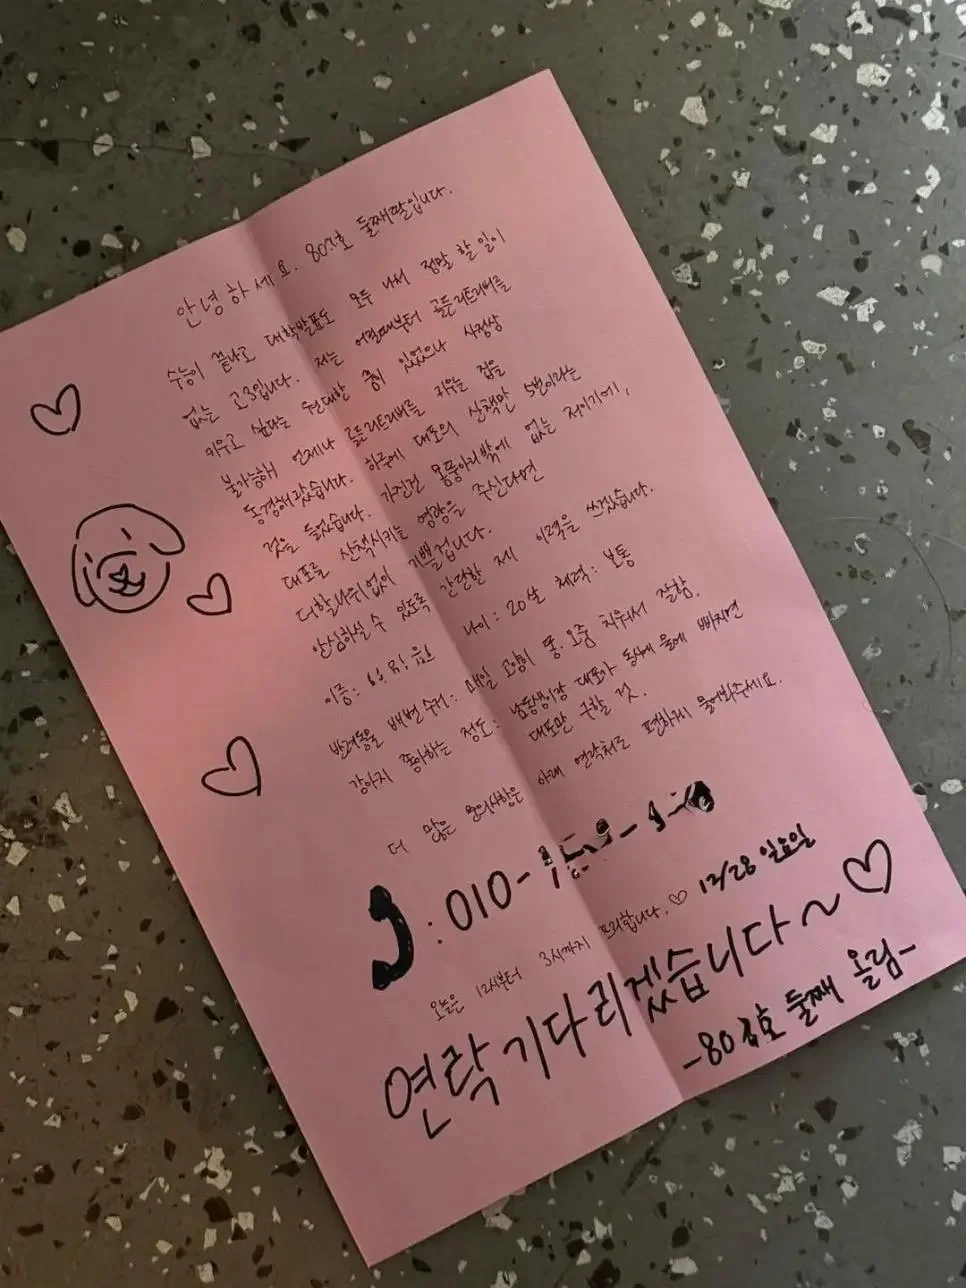 안녕하세요. 803호 둘째딸입니다.
수능이 끝나고 대학발표도 모두 나서 정말 할 일이
없는 고3입니다. 저는 어릴때부터 골든리트리버를
키우고 싶다는 원대한 꿈이 있었으나 사정상
불가능해 언제나 골든리트리버를 키우는 집을
동경해왔습니다. 하루에 대포의 산책만 5번이라는
것을 들었습니다. 가진건 몸뚱아리밖에 없는 저이기에,
대포를 산책시키는 영광을 주신다면
더할나위없이 기쁠겁니다.
안심하실 수 있도록 간단한 제 이력을 쓰겠습니다.
이름: 나이: 20살 체력: 보통
반려동물 배변 수거: 매일 고양이 똥.오줌 치워서 잘함.
강아지 좋아하는 정도: 남동생이랑 대포가 동시에 물에 빠지면
대포만 구할 것.
더 많은 문의사항은 아래 연락처로 편하게 물어봐주세요.
: 010-
오늘은 12시부터 3시까지 프리합니다.♡ 12/28 일요일
연락 기다리겠습니다~♡
-803호 둘째 올림-